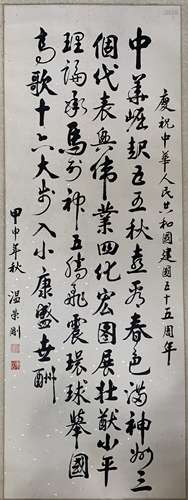 慶祝中華人民共和國建國五十五周年
中華崛起五五秋 意秀春色滿神州 三
個代表興偉業 四化宏圖展壯猷 小平
理論承馬列 神五騰飛震環球 舉國
高歌十六大 步入小康盛世酬
甲申年秋 溫榮剛